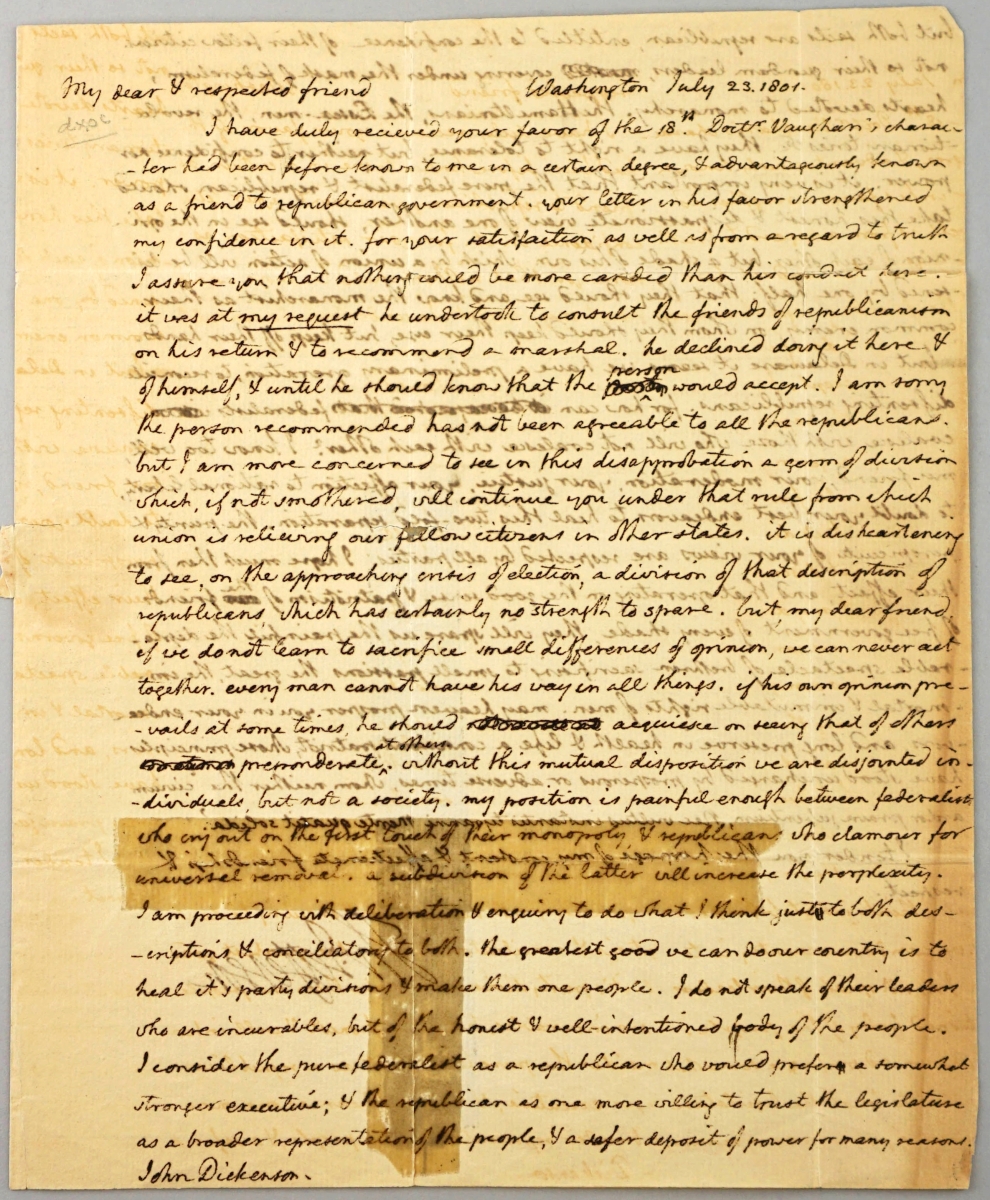 My dear & respected friend Washington July 23. 1801.
dxpc
I have duly recieved your favor of the 18th. Doctr. Vaughan's charac-
-ter had been before known to me in a certain degree, & advantageously known
as a friend to republican government. your letter in his favor strengthened
my confidence in it. for your satisfaction as well as from a regard to truth
I assure you that nothing could be more candid than his conduct here.
it was at my request he undertook to consult the friends of republicanism
on his return & to recommend a marshal. he declined doing it here &
of himself, & until he should know that the person would accept. I am sorry
the person recommended has not been agreeable to all the republicans.
but I am more concerned to see in this disapprobation a germ of division
which, if not smothered, will continue you under that rule from which
union is relieving our fellow citizens in other states. it is disheartening
to see, on the approaching crisis of election, a division of that description of
republicans, which has certainly no strength to spare. but, my dear friend,
if we do not learn to sacrifice small differences of opinion, we can never act
together. every man cannot have his way in all things. if his own opinion pre-
-vails at some times, he should acquiesce on seeing that of others
preponderate at others. without this mutual disposition we are disjointed in-
-dividuals, but not a society. my position is painful enough between federalists
who cry out on the first touch of their monopoly, & republicans who clamour for
universal removal. a subdivision of the latter will increase the perplexity.
I am proceeding with deliberation & enquiry to do what I think just to both des-
-criptions & conciliatory to both. the greatest good we can do our country is to
heal it's party divisions & make them one people. I do not speak of their leaders
who are incurables, but of the honest & well-intentioned body of the people.
I consider the pure federalist as a republican who would prefer a somewhat
stronger executive; & the republican as one more willing to trust the legislature
as a broader representation of the people, & a safer deposit of power for many reasons.
John Dickenson.